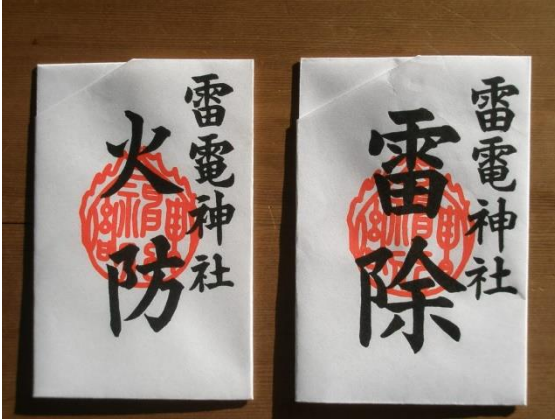 雷電神社
火防
雷電神社
雷除